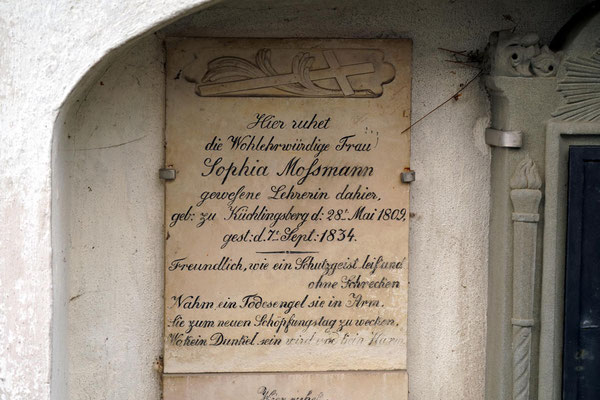 Hier ruhet
die Wohlehrwürdige Frau
Sophia Moſsmann
geweſene Lehrerin dahier,
geb: zu Küchlingsberg d: 28.ᵗ Mai 1809,
gest: d. 7.ᵗ Sept: 1834.
Freundlich, wie ein Schutzgeist leiſ and
ohne Schrecken
Nahm ein Todesengel sie in Arm.
Sie zum neuen Schöpfungstag zu wecken,
Wo kein Dunkel sein wird und kein Harm
Hier ruhet